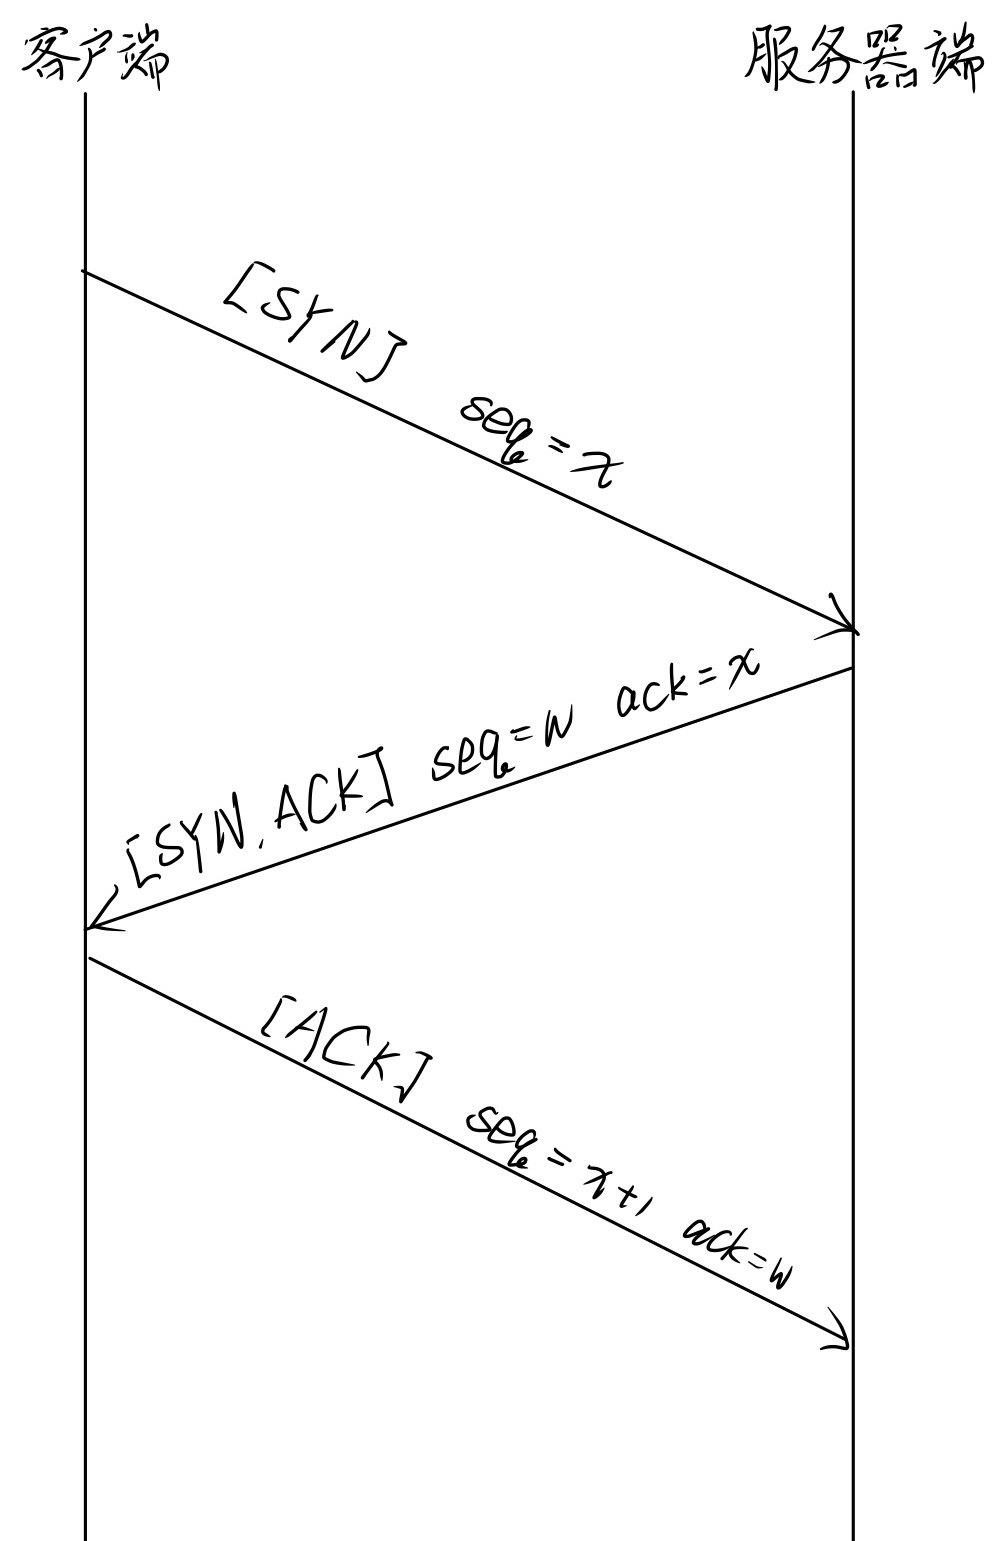 客户端
服务器端
[SYN] seq=x
[SYN, ACK] seq=w ack=x
[ACK] seq=x+1 ack=w